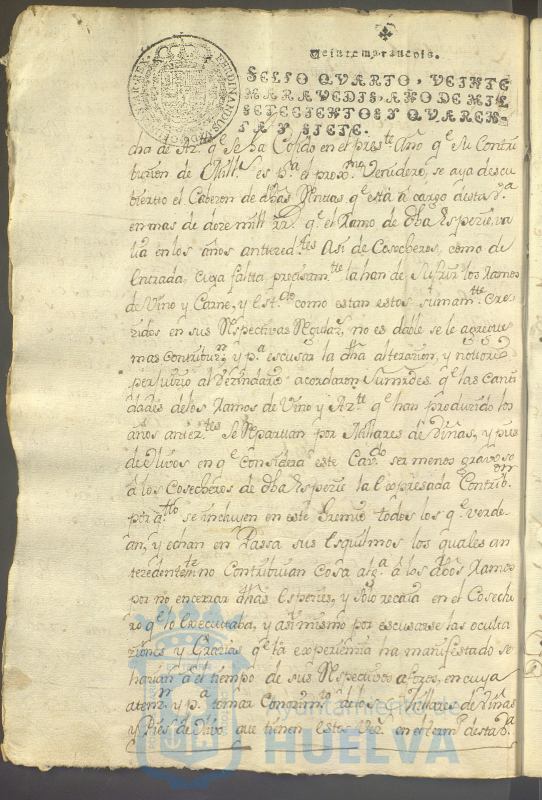 Veinte maravedis.
SELLO QVARTO, VEINTE
MARAVEDIS, AÑO DE MIL
SETECIENTOS Y QVAREN-
TA Y SIETE.
cha de Az.te q.e se ha Cojido en el pres.te Año q.e su Contri
bucion de Mill.s es p.a el prox.mo Venidero, se aya descu
viertto el Cabezon de dhas Rentas q.e está a cargo desta V.a
en mas de doze mill rr.s q.e el Ramo de dha Especie, va
lia en los años anteced.tes Asi de Cosecheros, como de
Entrada, cuya faltta precisam.te la han de Sufrir los Ramos
de Vino y Carne, y est.do como estan estos sumam.te Cre-
zidos en sus Respectivas Regulaz.s no es dable se le agregue
mas Contribuz.n y p.a escusar la dha alterazion, y nottorio
perjuizio al Vezindario acordaron Sumrdes. q.e las Canti
dades de los Ramos de Vino y Az.te q.e han produzido los
años anter.tes se Repartan por Millares de Viñas, y pies
de Olivos en q.e Considera este Cav.do ser menos gravoso
á los Cosecheros de dha Especie la Expresada Contribu.on
por q.to se incluyen en este Gremio todos los q.e verde-
an, y echan en Passa sus Esquilmos los quales an
tecedentem.te no Contribuian Cosa alg.a á los dhos Ramos
por no encerrar dhas Especies, y solo recaia en el Coseche
ro q.e lo executtaba, y asimismo por escusarse las oculta
ziones y Grazias q.e la experienzia ha manifestado se
harian á el tiempo de sus Respectivos aforos, en cuya
atenz.n y p.a tomar Conozim.to de los Millares de Viñas
y Pies de Olivo que tienen estos Vez.s en el term.o desta V.a
Ayuntamiento de
HUELVA